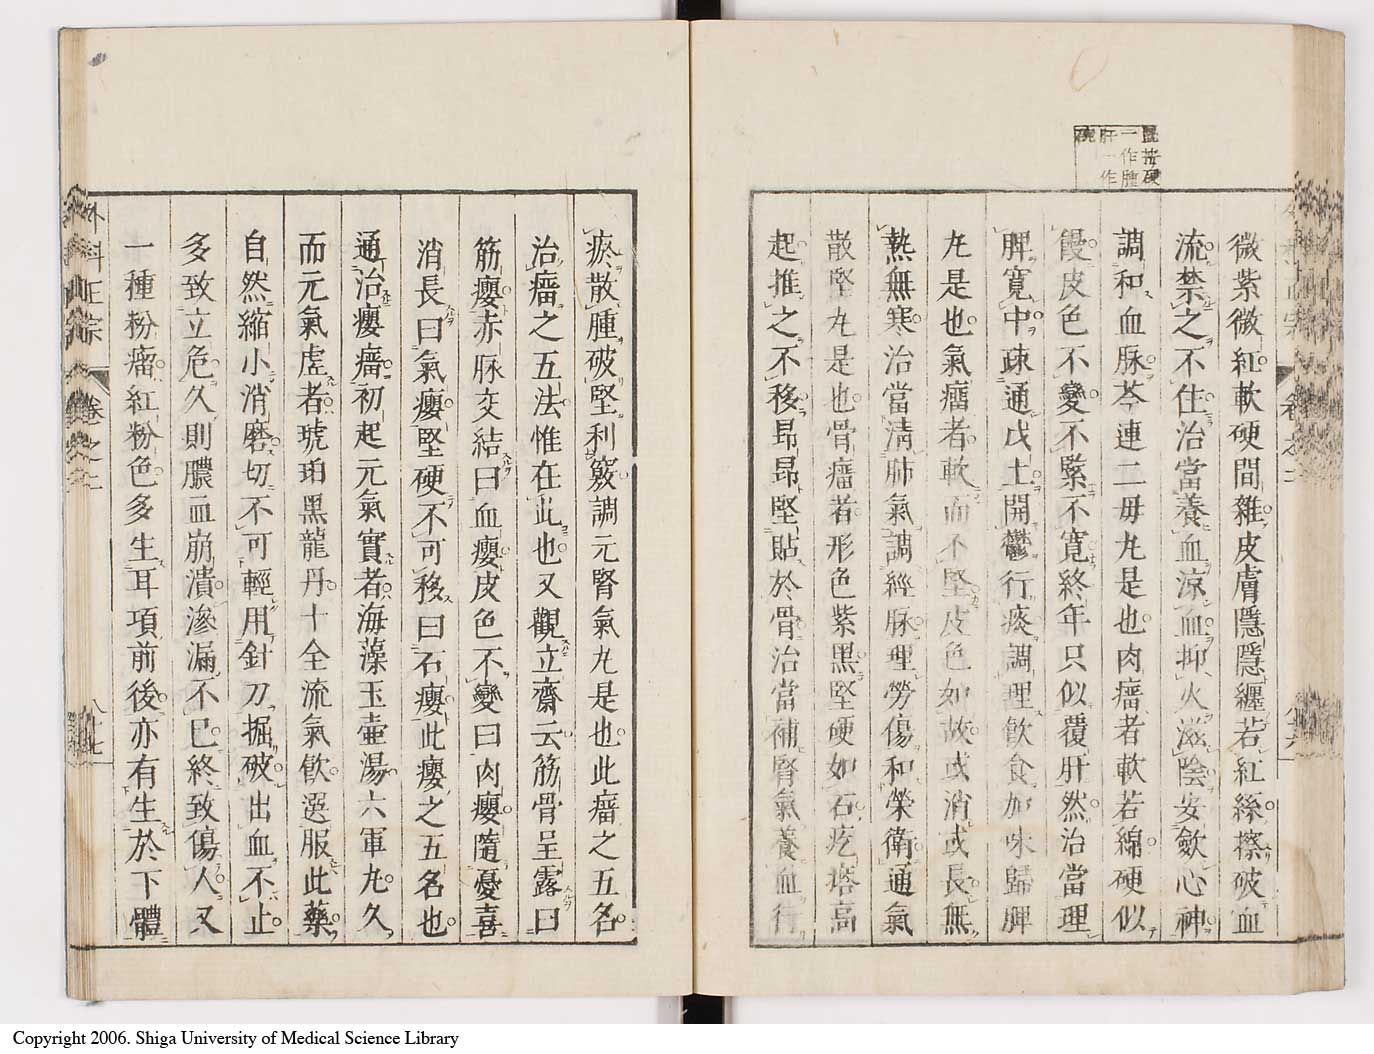 微紫微紅軟硬間雜皮膚隱隱纏若紅絲擦破血
流禁之不住治當養血涼血抑火滋陰安斂心神
調和血脉芩連二母丸是也肉瘤者軟若綿硬似
饅皮色不變不緊不寛終年只似覆肝然治當理
脾寛中疎通戊土開鬱行痰調理飲食加味歸脾
丸是也氣瘤者軟而不堅皮色如故或消或長無
熱無寒治當淸肺氣調經脉理勞傷和榮衛通氣
散堅丸是也骨瘤者形色紫黒堅硬如石疙瘩高
起推之不移昻昻堅貼於骨治當補腎氣養血行
瘀散腫破堅利竅調元腎氣丸是也此瘤之五名
治瘤之五法惟在此也又觀立齋云筋骨呈露曰
筋癭赤脉交結曰血癭皮色不變曰肉癭隨憂喜
消長曰氣癭堅硬不可移曰石癭此癭之五名也
通治癭瘤初起元氣實者海藻玉壷湯六軍丸久
而元氣虚者琥珀黒龍丹十全流氣飮選服此藥
自然縮小消磨切不可輕用針刀掘破出血不止
多致立危久則膿血崩潰滲漏不已終致傷人又
一種粉瘤紅粉色多生耳項前後亦有生於下體
外科正宗 卷之二 八十七
Copyright 2006. Shiga University of Medical Science Library